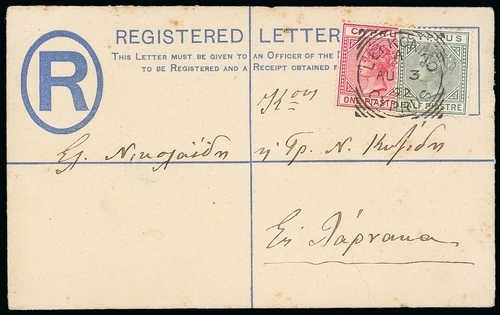 REGISTERED LETTER
THIS LETTER MUST BE GIVEN TO AN OFFICER OF THE
TO BE REGISTERED AND A RECEIPT OBTAINED F
R
CYPRUS
ONE PIASTRE
HALF PIASTRE
AU 3
92
CYPRUS
Κον
Ελ. Νικολαΐδη
ή Γρ. Ν.
Εις Λάρνακα